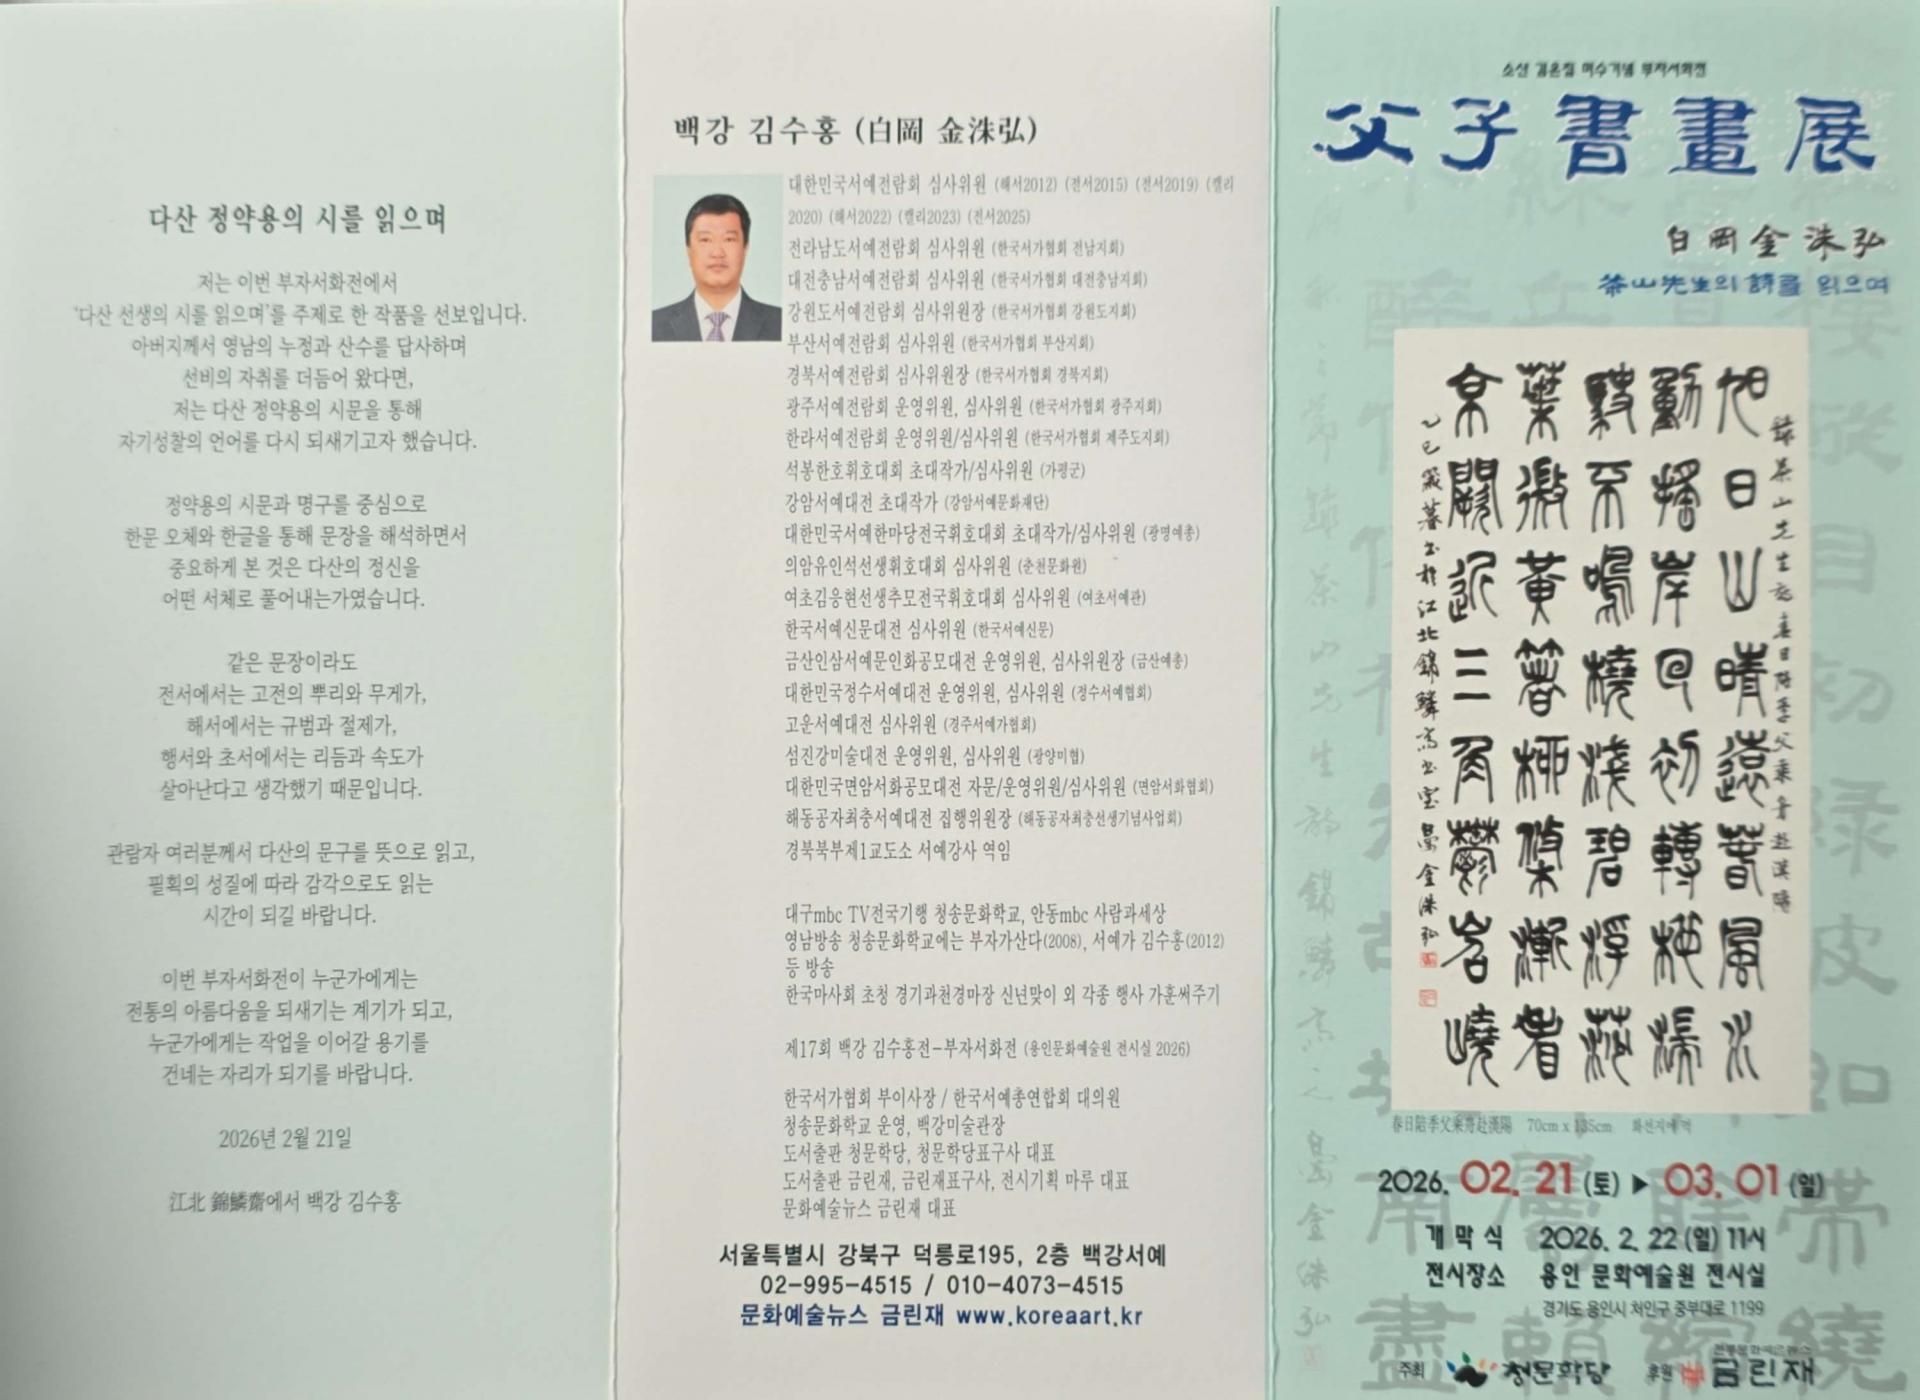 다산 정약용의 시를 읽으며
저는 이번 부자서화전에서
'다산 선생의 시를 읽으며'를 주제로 한 작품을 선보입니다.
아버지께서 영남의 누정과 산수를 답사하며
선비의 자취를 더듬어 왔다면,
저는 다산 정약용의 시문을 통해
자기성찰의 언어를 다시 되새기고자 했습니다.
정약용의 시문과 명구를 중심으로
한문 오체와 한글을 통해 문장을 해석하면서
중요하게 본 것은 다산의 정신을
어떤 서체로 풀어내는가였습니다.
같은 문장이라도
전서에서는 고전의 뿌리와 무게가,
해서에서는 규범과 절제가,
행서와 초서에서는 리듬과 속도가
살아난다고 생각했기 때문입니다.
관람자 여러분께서 다산의 문구를 뜻으로 읽고,
필획의 성질에 따라 감각으로도 읽는
시간이 되길 바랍니다.
이번 부자서화전이 누군가에게는
전통의 아름다움을 되새기는 계기가 되고,
누군가에게는 작업을 이어갈 용기를
건네는 자리가 되기를 바랍니다.
2026년 2월 21일
江北 錦鱗齋에서 백강 김수홍
백강 김수홍 (白岡 金洙弘)
대한민국서예전람회 심사위원 (해서2012) (전서2015) (전서2019) (캘리
2020) (해서2022) (캘리2023) (전서2025)
전라남도서예전람회 심사위원 (한국서가협회 전남지회)
대전충남서예전람회 심사위원 (한국서가협회 대전충남지회)
강원도서예전람회 심사위원장 (한국서가협회 강원도지회)
부산서예전람회 심사위원 (한국서가협회 부산지회)
경북서예전람회 심사위원장 (한국서가협회 경북지회)
광주서예전람회 운영위원, 심사위원 (한국서가협회 광주지회)
한라서예전람회 운영위원/심사위원 (한국서가협회 제주도지회)
석봉한호휘호대회 초대작가/심사위원 (가평군)
강암서예대전 초대작가 (강암서예문화재단)
대한민국서예한마당전국휘호대회 초대작가/심사위원 (광명예총)
의암유인석선생휘호대회 심사위원 (춘천문화원)
여초김응현선생추모전국휘호대회 심사위원 (여초서예관)
한국서예신문대전 심사위원 (한국서예신문)
금산인삼서예문인화공모대전 운영위원, 심사위원장 (금산예총)
대한민국정수서예대전 운영위원, 심사위원 (정수서예협회)
고운서예대전 심사위원 (경주서예가협회)
섬진강미술대전 운영위원, 심사위원 (광양미협)
대한민국면암서화공모대전 자문/운영위원/심사위원 (면암서화협회)
해동공자최충서예대전 집행위원장 (해동공자최충선생기념사업회)
경북북부제1교도소 서예강사 역임
대구mbc TV전국기행 청송문화학교, 안동mbc 사람과세상
영남방송 청송문화학교에는 부자가산다(2008), 서예가 김수홍(2012)
등 방송
한국마사회 초청 경기과천경마장 신년맞이 외 각종 행사 가훈써주기
제17회 백강 김수홍전-부자서화전 (용인문화예술원 전시실 2026)
한국서가협회 부이사장 / 한국서예총연합회 대의원
청송문화학교 운영, 백강미술관장
도서출판 청문학당, 청문학당표구사 대표
도서출판 금린재, 금린재표구사, 전시기획 마루 대표
문화예술뉴스 금린재 대표
서울특별시 강북구 덕릉로195, 2층 백강서예
02-995-4515 / 010-4073-4515
문화예술뉴스 금린재 www.koreaart.kr
父子書畫展
白岡金洙弘
茶山先生의 詩를 읽으며
旭日山晴遠春風水
動搖岸回初轉柁湍
駛不鳴橈淺碧浮莎
葉微黃著柳條漸看
京闕近三角鬱岧嶢
春日陪季父乘舟赴漢陽 70cm x 135cm 화선지에 먹
2026. 02. 21 (토) ▶ 03. 01 (일)
개 막 식 2026. 2. 22 (일) 11시
전시장소 용인 문화예술원 전시실
경기도 용인시 처인구 중부대로 1199
주최 청문학당 후원 금린재